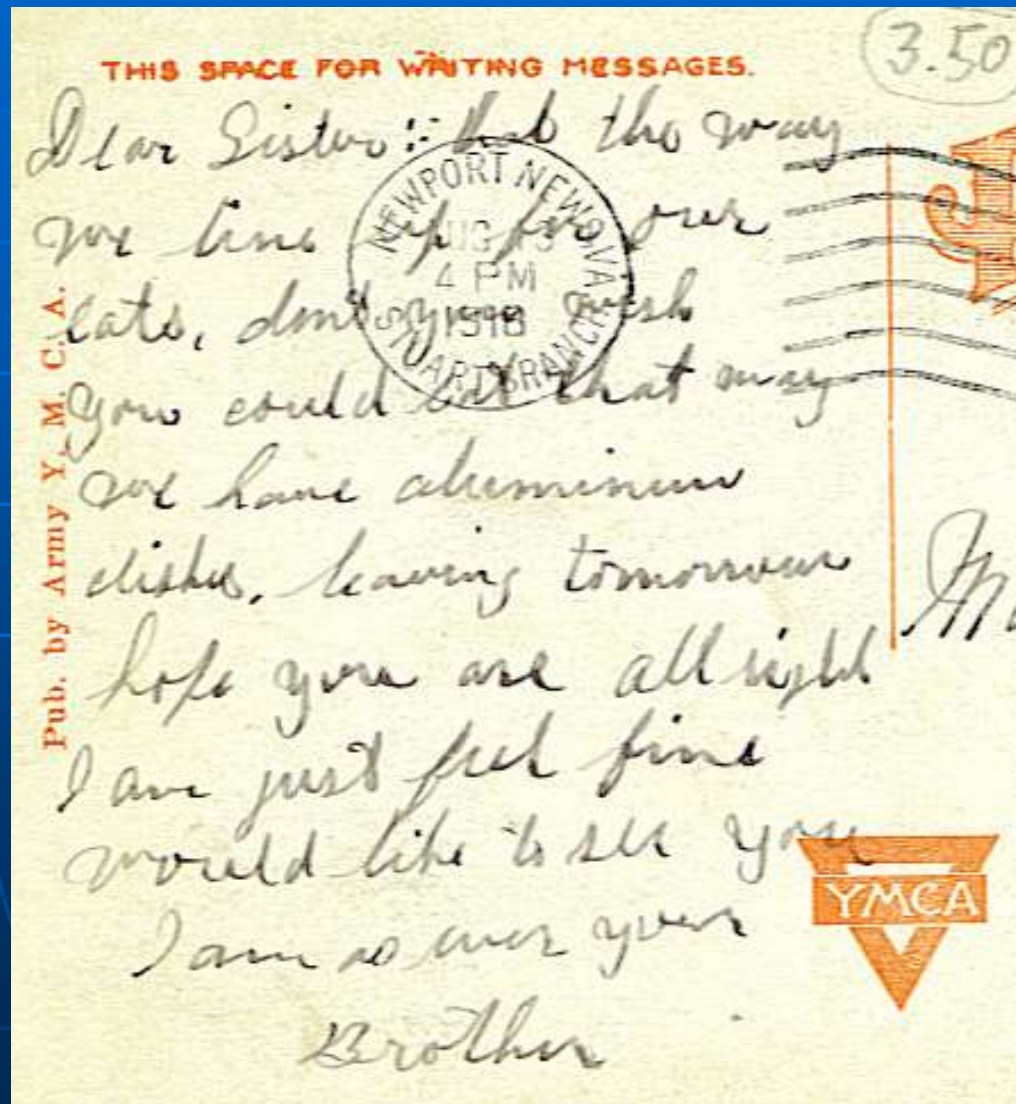 3.50
THIS SPACE FOR WRITING MESSAGES.
Dear Sister:- that the way
we line up for our
eats, don't you wish
you could eat that way
we have aluminum
dishes, leaving tomorrow
hope you are all right
I am just feel fine
would like to see you
I am as ever your
Brother
NEWPORT NEWS VA
AUG 13
4 PM
1918
STUART BRANCH
Pub. by Army Y. M. C. A.
YMCA